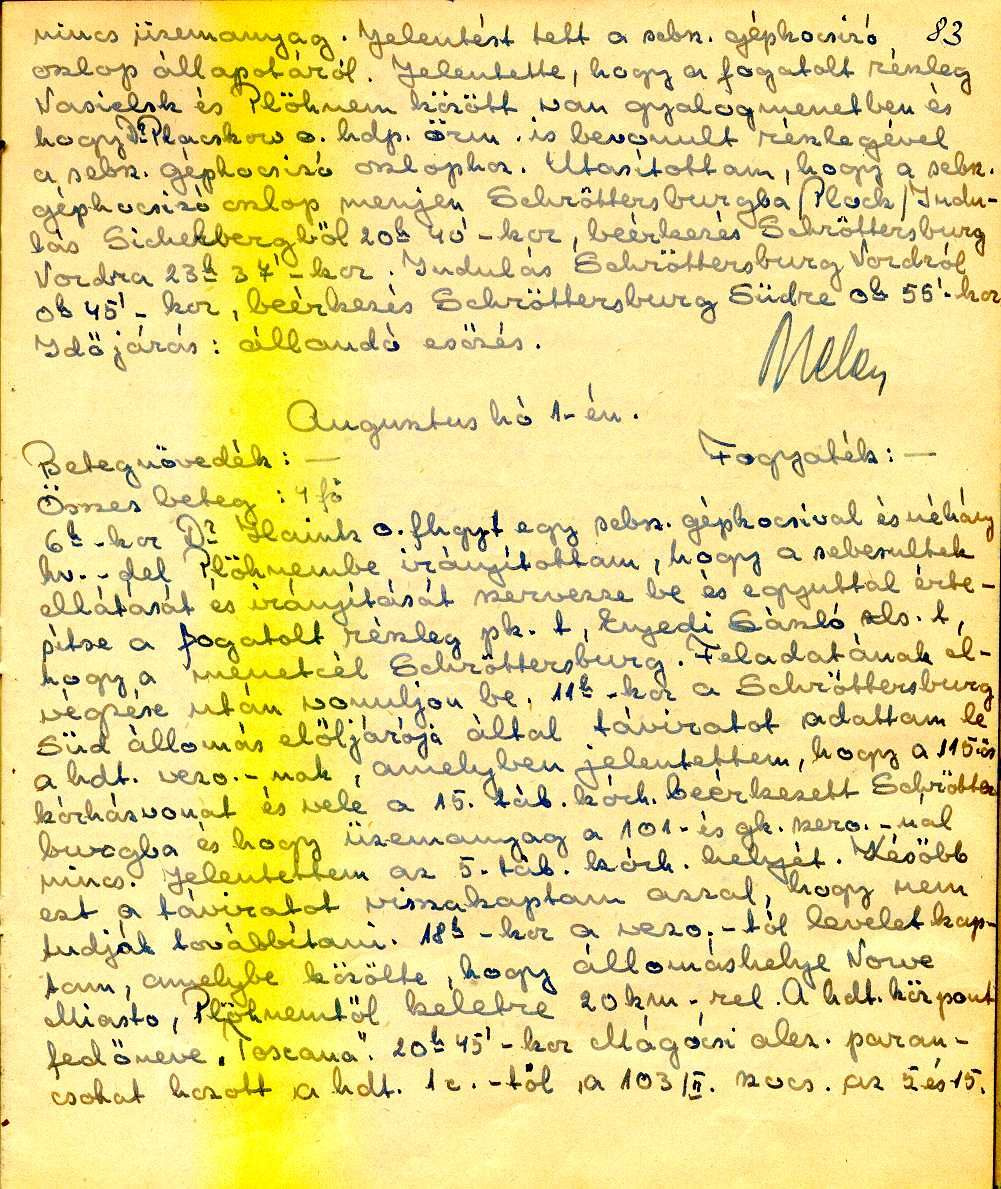 83
nincs üzemanyag. Jelentést tett a sebs. gépkocsizó
oszlop állapotáról. Jelentette, hogy a fogatolt részleg
és Plöhnem között van gyalogmenetben és
hogy Dr Placskow o. hdp. őrm. is bevonult részlegével
a sebs. gépkocsizó oszlophoz. Utasítottam, hogy a sebs.
gépkocsizó oszlop menjen Schröttersburgba /Plock/ Indu-
lás Sichelbergből 20h 40'-kor, beérkezés Schröttersburg
Nordra 23h 37'-kor. Indulás Schröttersburg Nordról
0h 45'-kor, beérkezés Schröttersburg Südre 0h 55'-kor
Időjárás: állandó esőzés.
Augusztus hó 1-én.
Betegnövedék: — Fogyaték: —
Összes beteg: 4 fő
6h-kor Dr o. fhgyt egy sebs. gépkocsival és néhány
hv.-del Plöhnembe irányítottam, hogy a sebesultek
ellátását és irányítását szervezze be és egyuttal érte-
sítse a fogatolt részleg pk. t, Enyedi László zls. t,
hogy a menetcél Schröttersburg. Feladatának el-
végzése után vonuljon be. 11h-kor a Schröttersburg
Süd állomás elöljárója által táviratot adattam le
a hdt. vezo.-nak, amelyben jelentettem, hogy a 115-ös
kórházvonat és vele a 15. táb. kórh. beérkezett Schrötters
burgba és hogy üzemanyag a 101-es gk. szero.-nál
nincs. Jelentettem az 5. táb. kórh. helyét. Később
ezt a táviratot visszakaptam azzal, hogy nem
tudják továbbítani. 18h-kor a vezo.-től levelet kap-
tam, amelybe közölte, hogy állomáshelye Nowe
Miasto, Plöhnemtől keletre 20 km-rel. A hdt. központ
fedőneve "Toscana". 20h 45'-kor Mágócsi alez. paran-
csokat hozott a hdt. 1c.-től, a 103/II. szocs. az 5 és 15.